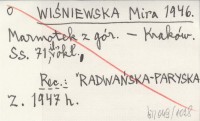 o WIŚNIEWSKA Mira 1946.
Marmotek z gór. – Kraków.
Ss. 71, 1 okl.
Rec.: "RADWAŃSKA-PARYSKA
Z. 1947 h.